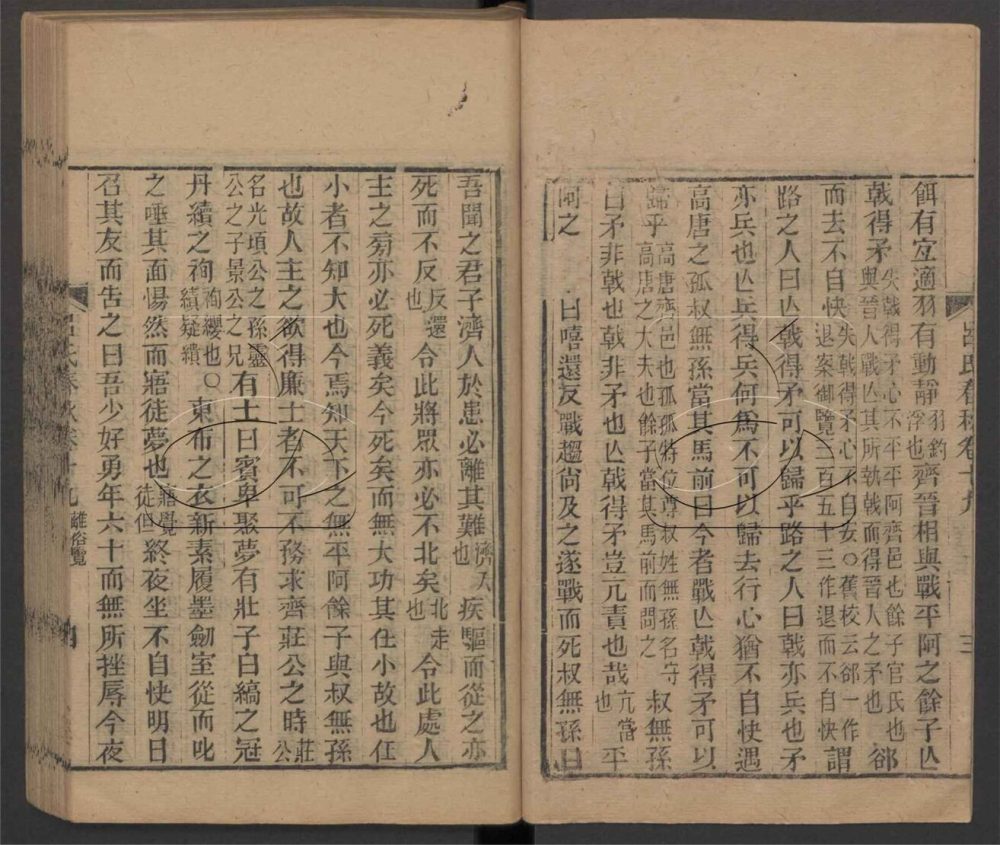 呂氏春秋卷十九
三
餌有宜適羽有動靜羽釣浮也齊晉相與戰平阿之餘子亾
戟得矛失戟得矛心不平平阿齊邑也餘子官氏也與晉人戰亾其所執戟而得晉人之矛也郤
而去不自快失戟得矛心不自安〇舊校云郤一作退案御覽三百五十三作退而不自快謂
路之人曰亾戟得矛可以歸乎路之人曰戟亦兵也矛
亦兵也亾兵得兵何爲不可以歸去行心猶不自快遇
高唐之孤叔無孫當其馬前曰今者戰亾戟得矛可以
歸乎高唐齊邑也孤孤特位尊叔姓無孫名守高唐之大夫也餘子當其馬前而問之叔無孫
曰矛非戟也戟非矛也亾戟得矛豈亢責也哉亢當也平
阿之 曰嘻還反戰趨尚及之遂戰而死叔無孫曰
吾聞之君子濟人於患必離其難濟入也疾驅而從之亦
死而不反反還也令此將眾亦必不北矣北走也令此處人
主之旁亦必死義矣今死矣而無大功其任小故也任
小者不知大也今焉知天下之無平阿餘子與叔無孫
也故人主之欲得廉士者不可不務求齊莊公之時莊公
名光頃公之孫靈公之子景公之兄有士曰賓卑聚夢有壯子白縞之冠
丹績之袧袧纓也〇績疑繢東布之衣新素履墨劒室從而叱
之唾其面惕然而寤徒夢也寤覺徒但終夜坐不自快明日
召其友而告之曰吾少好勇年六十而無所挫辱今夜
呂氏春秋卷十九 離俗覽